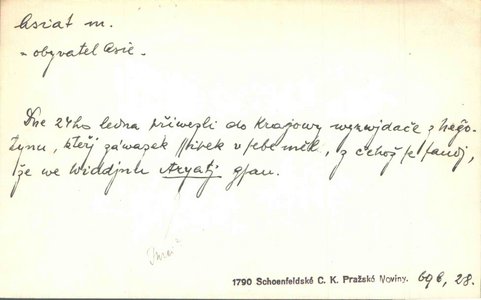 Asiat m.
- obyvatel Asie -
Dne 24ho ledna přiwezli do Krajowy wyzwjdače z Nego-
tynu, kterj záwazek ljstek v sebe měl, z čehož se saudj,
že we Widdjnu Azyatj gsau.
1790 Schoenfeldské C. K. Pražské Noviny. 696, 28.